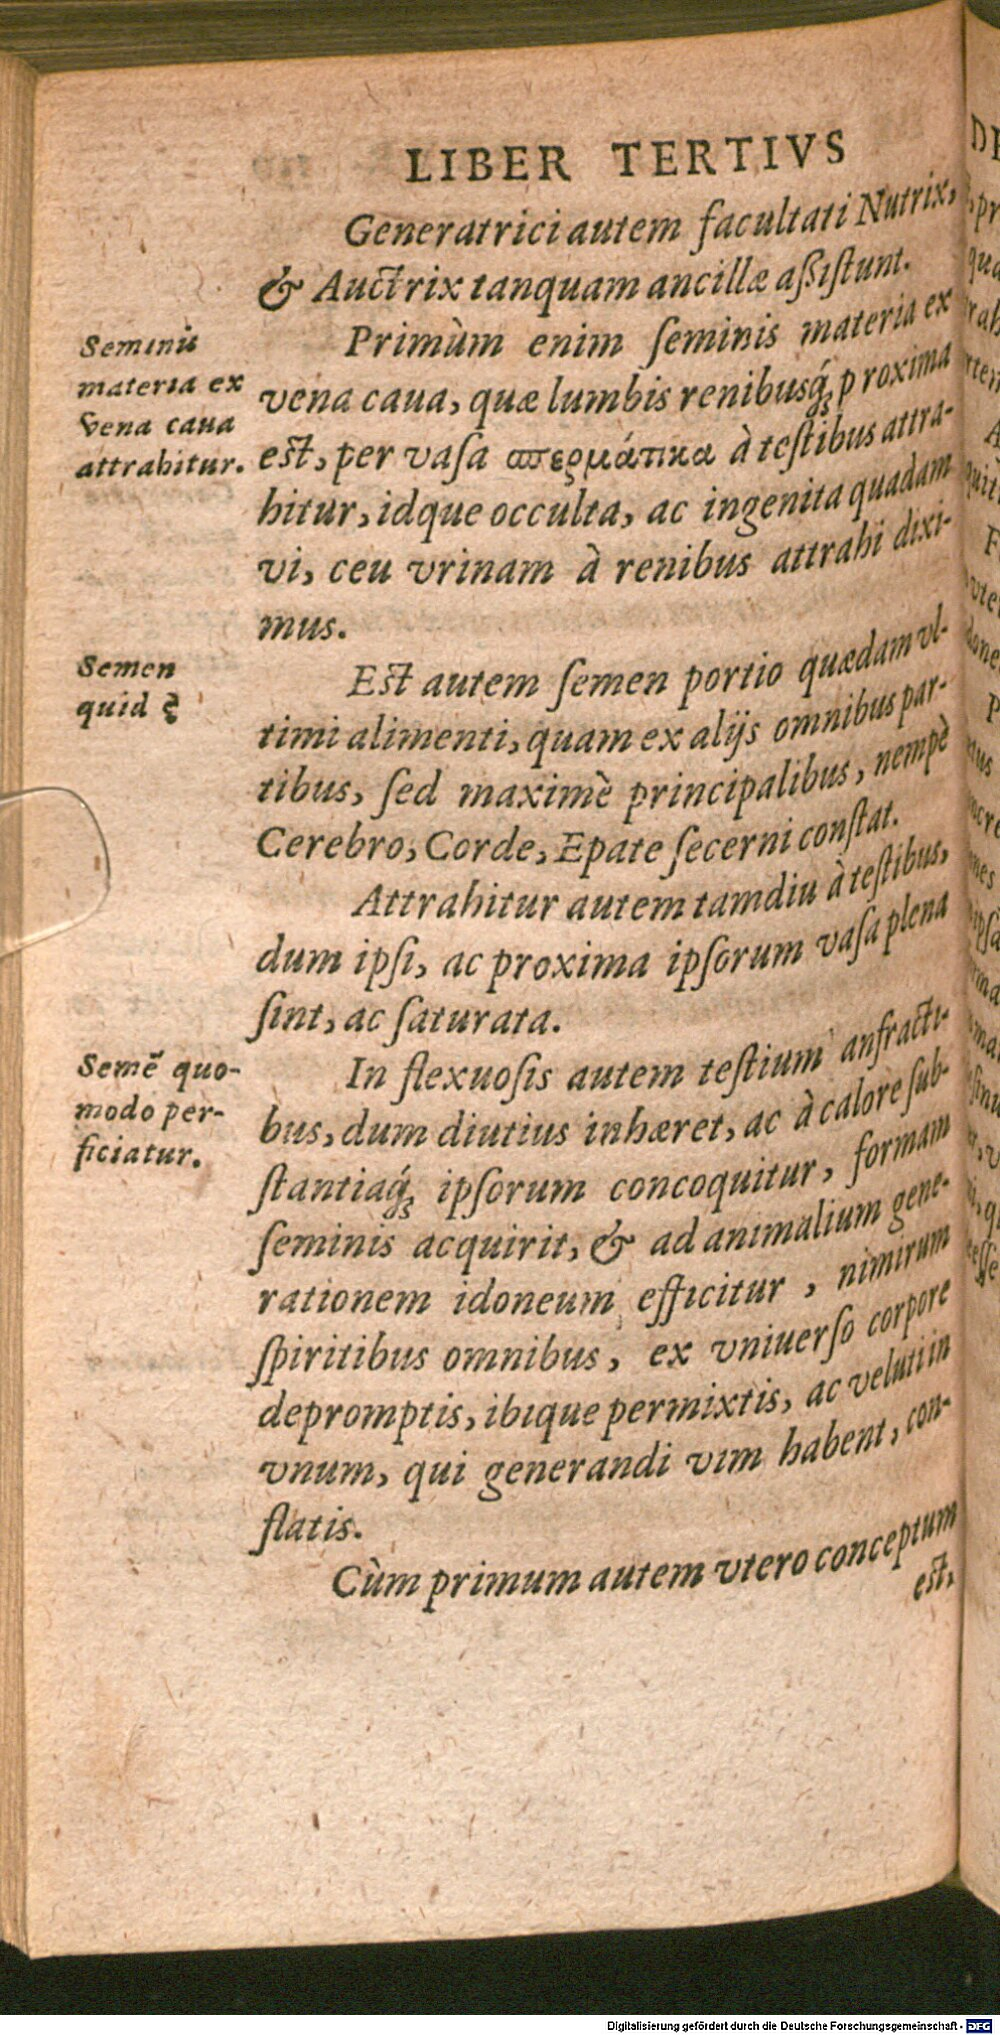 LIBER TERTIVS
Generatrici autem facultati Nutrix,
& Auctrix tanquam ancillæ aßiſtunt.
Primùm enim ſeminis materia ex
vena caua, quæ lumbis renibusq́; proxima
est, per vaſa σπερμάτικα à teſtibus attra-
hitur, idque occulta, ac ingenita quadam
vi, ceu vrinam à renibus attrahi dixi-
mus.
Seminis
materia ex
vena caua
attrahitur.
Est autem ſemen portio quædam vl-
timi alimenti, quam ex alijs omnibus par-
tibus, ſed maximè principalibus, nempè
Cerebro, Corde, Epate ſecerni conſtat.
Semen
quid ē
Attrahitur autem tamdiu à teſtibus,
dum ipſi, ac proxima ipſorum vaſa plena
ſint, ac ſaturata.
In flexuoſis autem teſtium anfracti-
bus, dum diutius inhæret, ac à calore ſub-
ſtantiaq́; ipſorum concoquitur, formam
ſeminis acquirit, & ad animalium gene-
rationem idoneum efficitur, nimirum
ſpiritibus omnibus, ex vniuerſo corpore
depromptis, ibique permixtis, ac veluti in
vnum, qui generandi vim habent, con-
flatis.
Semē quo-
modo per-
ficiatur.
Cùm primum autem vtero conceptum
est,
Digitalisierung gefördert durch die Deutsche Forschungsgemeinschaft - DFG